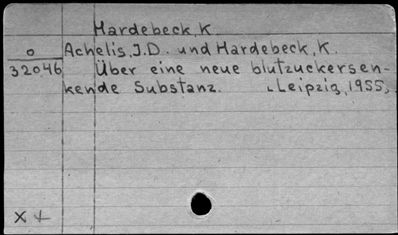 Hardebeck, K.
o Achelis, J.D. und Hardebeck, K.
32046 Über eine neue blutzuckersen-
kende Substanz. Leipzig, 1955,
X +